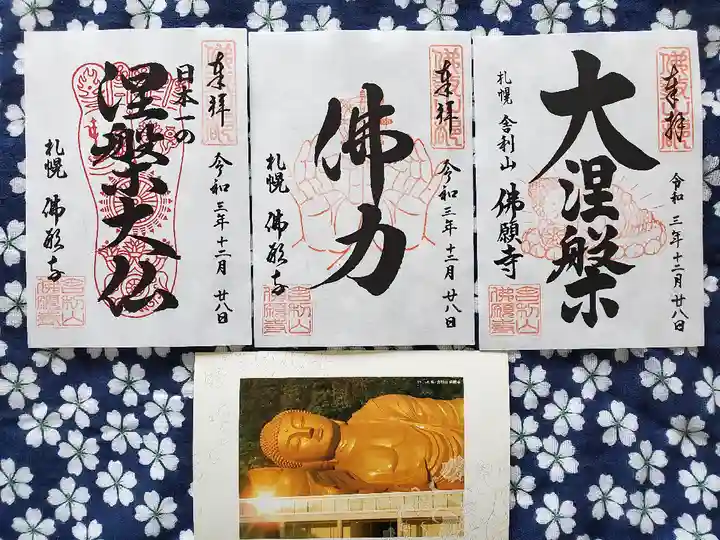 奉拝
日本一の
涅槃大仏
令和三年十二月廿八日
札幌 佛願寺
舎利山
佛願寺
奉拝
佛力
令和三年十二月廿八日
札幌 佛願寺
舎利山
佛願寺
奉拝
大涅槃
札幌 舎利山 佛願寺
令和三年十二月廿八日
舎利山
佛願寺